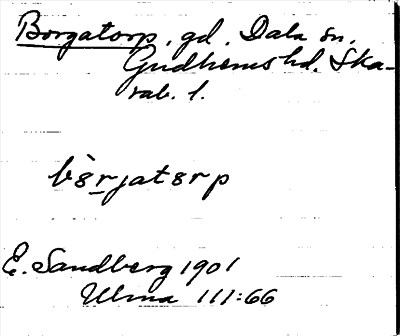 Borgatorp, gd. Dala sn,
Gudhems hd. Ska-
rab. l.
bòrjatorp
E. Sandberg 1901
Ulma 111:66